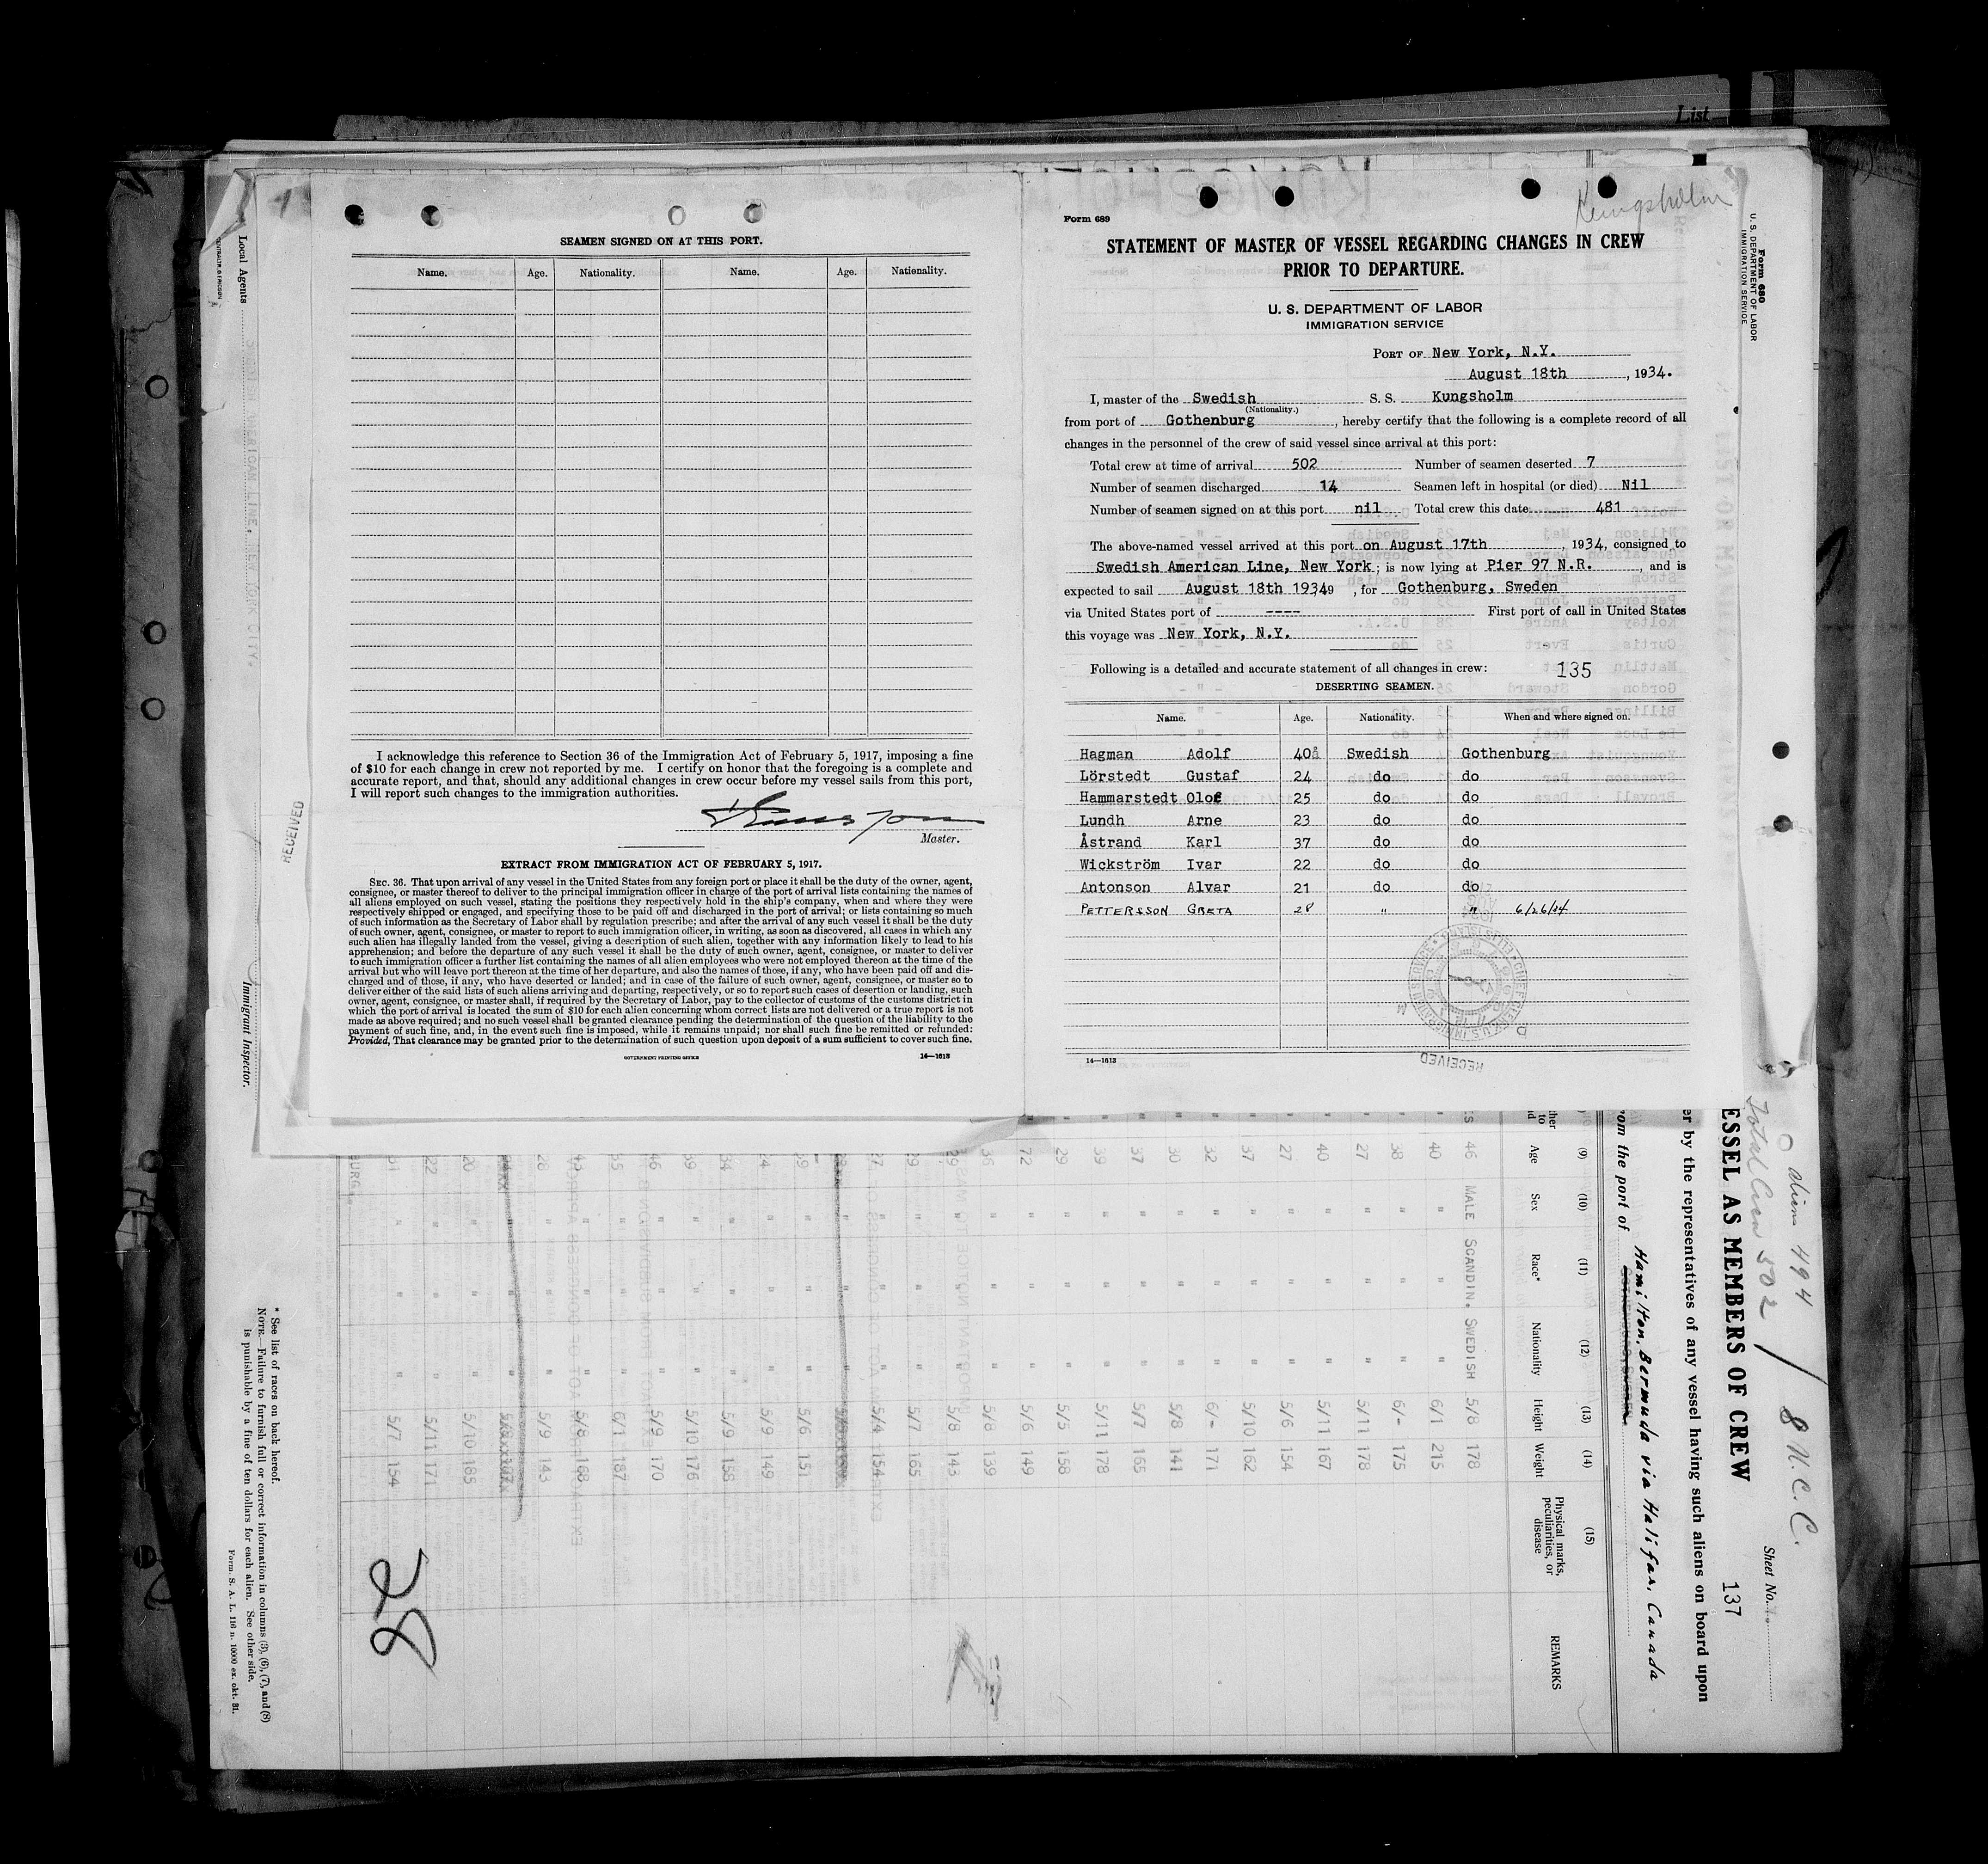 List
SEAMEN SIGNED ON AT THIS PORT.
Name. Age. Nationality. Name. Age. Nationality.
I acknowledge this reference to Section 36 of the Immigration Act of February 5, 1917, imposing a fine
of $10 for each change in crew not reported by me. I certify on honor that the foregoing is a complete and
accurate report, and that, should any additional changes in crew occur before my vessel sails from this port,
I will report such changes to the immigration authorities.
Master.
EXTRACT FROM IMMIGRATION ACT OF FEBRUARY 5, 1917.
SEC. 36. That upon arrival of any vessel in the United States from any foreign port or place it shall be the duty of the owner, agent,
consignee, or master thereof to deliver to the principal immigration officer in charge of the port of arrival lists containing the names of
all aliens employed on such vessel, stating the positions they respectively hold in the ship's company, when and where they were
respectively shipped or engaged, and specifying those to be paid off and discharged in the port of arrival; or lists containing so much
of such information as the Secretary of Labor shall by regulation prescribe; and after the arrival of any such vessel it shall be the duty
of such owner, agent, consignee, or master to report to such immigration officer, in writing, as soon as discovered, all cases in which any
such alien has illegally landed from the vessel, giving a description of such alien, together with any information likely to lead to his
apprehension; and before the departure of any such vessel it shall be the duty of such owner, agent, consignee, or master to deliver
to such immigration officer a further list containing the names of all alien employees who were not employed thereon at the time of the
arrival but who will leave port thereon at the time of her departure, and also the names of those, if any, who have been paid off and dis-
charged and of those, if any, who have deserted or landed; and in case of the failure of such owner, agent, consignee, or master so to
deliver either of the said lists of such aliens arriving and departing, respectively, or so to report such cases of desertion or landing, such
owner, agent, consignee, or master shall, if required by the Secretary of Labor, pay to the collector of customs of the customs district in
which the port of arrival is located the sum of $10 for each alien concerning whom correct lists are not delivered or a true report is not
made as above required; and no such vessel shall be granted clearance pending the determination of the question of the liability to the
payment of such fine, and, in the event such fine is imposed, while it remains unpaid; nor shall such fine be remitted or refunded:
Provided, That clearance may be granted prior to the determination of such question upon deposit of a sum sufficient to cover such fine.
GOVERNMENT PRINTING OFFICE 14—1613
Kungsholm
Form 689
STATEMENT OF MASTER OF VESSEL REGARDING CHANGES IN CREW
PRIOR TO DEPARTURE.
U. S. DEPARTMENT OF LABOR
IMMIGRATION SERVICE
PORT OF New York, N.Y.
August 18th, 1934.
I, master of the Swedish S. S. Kungsholm
(Nationality.)
from port of Gothenburg, hereby certify that the following is a complete record of all
changes in the personnel of the crew of said vessel since arrival at this port:
Total crew at time of arrival 502 Number of seamen deserted 7
Number of seamen discharged 14 Seamen left in hospital (or died) Nil
Number of seamen signed on at this port nil Total crew this date 481
The above-named vessel arrived at this port on August 17th, 1934, consigned to
Swedish American Line, New York; is now lying at Pier 97 N.R., and is
expected to sail August 18th 19349, for Gothenburg, Sweden
via United States port of ---- First port of call in United States
this voyage was New York, N.Y.
Following is a detailed and accurate statement of all changes in crew: 135
DESERTING SEAMEN.
Name. Age. Nationality. When and where signed on.
Hagman Adolf 40 Swedish Gothenburg
Lörstedt Gustaf 24 do do
Hammarstedt Olof 25 do do
Lundh Arne 23 do do
Åstrand Karl 37 do do
Wickström Ivar 22 do do
Antonson Alvar 21 do do
PETTERSSON GRETA 28 " " 6/26/34
14—1613
RECEIVED
Form 680
U. S. DEPARTMENT OF LABOR
IMMIGRATION SERVICE
Local Agents
RECEIVED
Immigrant Inspector.
aliens 494
Total Crew 502 / 8 U.C.C.
Sheet No.
ESSEL AS MEMBERS OF CREW 137
er by the representatives of any vessel having such aliens on board upon
om the port of Hamilton, Bermuda via Halifax, Canada
(9) (10) (11) (12) (13) (14) (15)
Age Sex Race* Nationality Height Weight Physical marks, peculiarities, or disease REMARKS
46 MALE SCANDIN. SWEDISH 5/8 178
40 " " " 6/1 215
38 " " " 6/- 175
27 " " " 5/11 178
40 " " " 5/11 167
27 " " " 5/6 154
37 " " " 5/10 162
32 " " " 6/- 171
30 " " " 5/8 141
37 " " " 5/7 165
39 " " " 5/11 178
29 " " " 5/5 158
72 " " " 5/6 149
36 " " " 5/8 139
39 " " " 5/8 143
" " " 5/7 165
" " " 5/4 154
" " " 5/6 151
" " " 5/9 149
" " " 5/9 158
" " " 5/10 176
" " " 5/9 170
" " " 6/1 187
" " " 5/8 168
28 " " " 5/9 143
" " " 5/10 185
22 " " " 5/11 171
" " " 5/7 154
* See list of races on back hereof.
NOTE.—Failure to furnish full or correct information in columns (3), (6), (7), and (8)
is punishable by a fine of ten dollars for each alien. See other side.
Form. S. A. L. 116 n. 10000 ex. okt. 31.